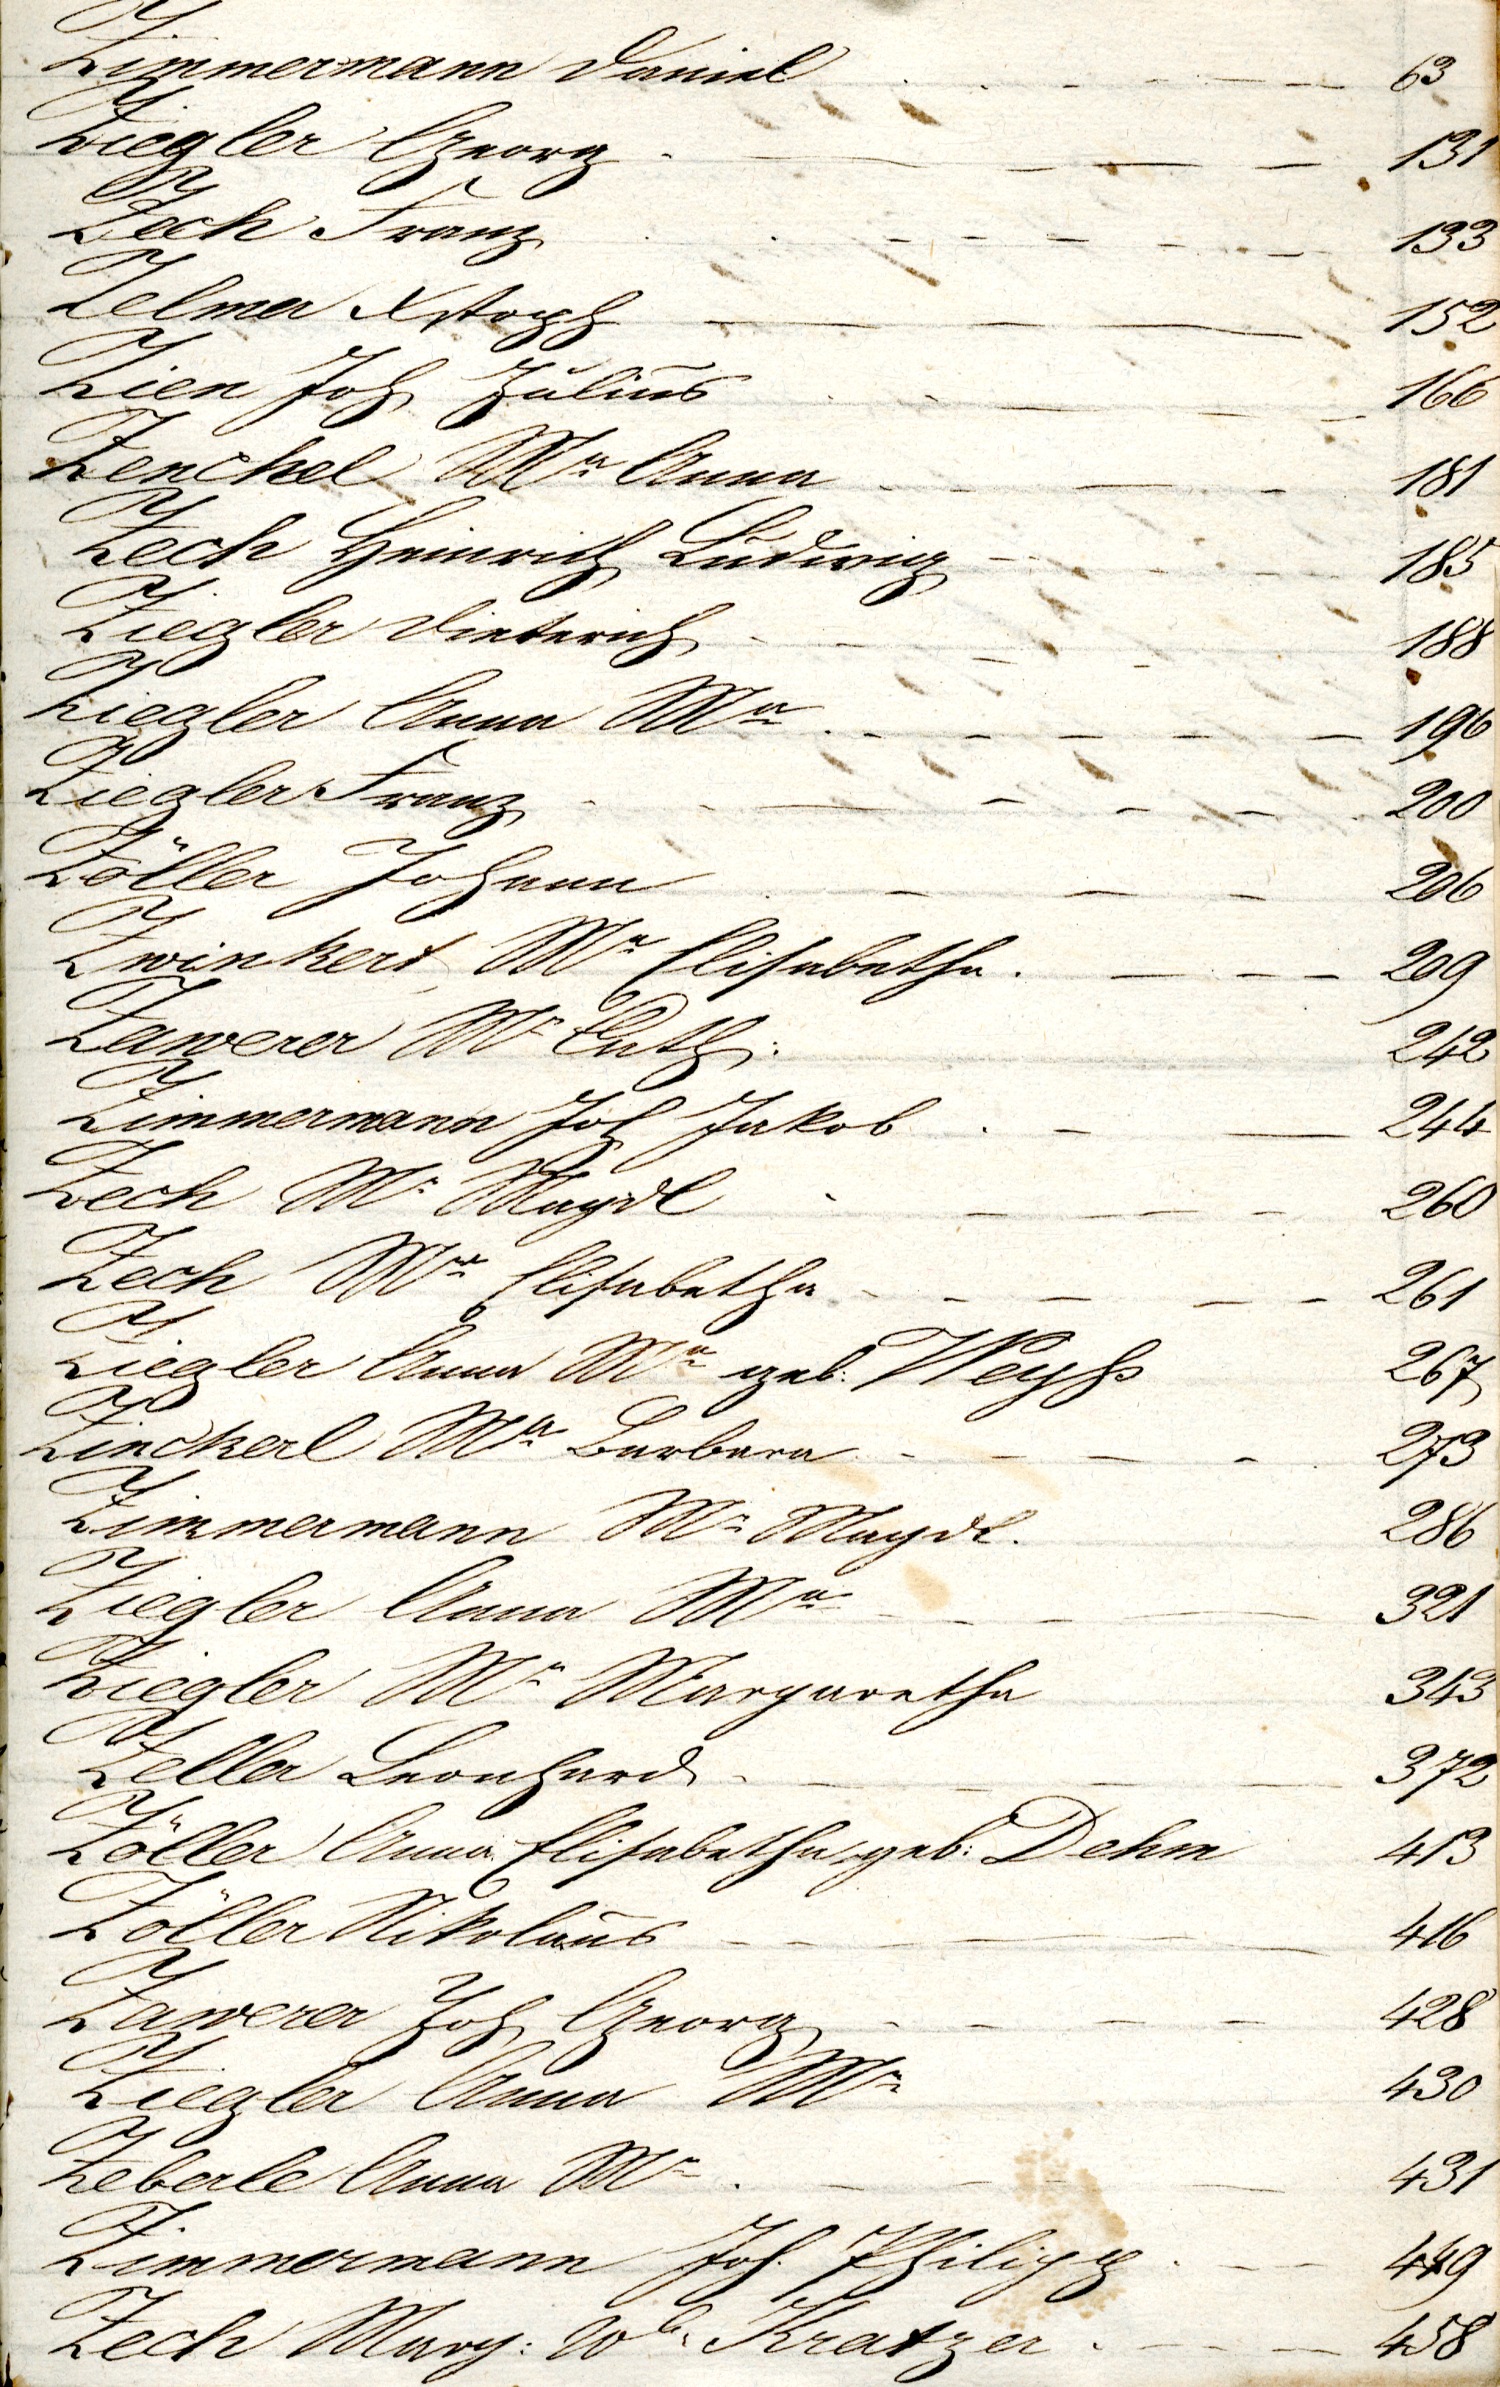 Zimmermann Daniel 63
Ziegler Georg 131
Zech Franz 133
Zelmer Xstoph 152
Zien Joh Julius 166
Zenckel Ma Anna 181
Zech Heinrich Ludwig 185
Ziegler Dieterich 188
Ziegler Anna Ma 196
Ziegler Franz 200
Zöller Johann 206
Zwinkert Ma Elisabetha 209
Zawerer Ma Cath: 242
Zimmermann Joh Jakob 244
Zech Ma Magdl 260
Zech Ma Elisabetha 261
Ziegler Anna Ma geb: Weyß 267
Zinckerl Ma Barbara 273
Zimmermann Ma Magdl. 286
Ziegler Anna Ma 321
Ziegler Ma Margaretha 343
Zeller Leonhard 372
Zöller Anna Elisabetha geb: Dehm 413
Zöller Nikolaus 416
Zawerer Joh Georg 428
Ziegler Anna Ma 430
Zeberle Anna Ma 431
Zimmermann Joh. Philipp 449
Zech Marg: Kratzer 458